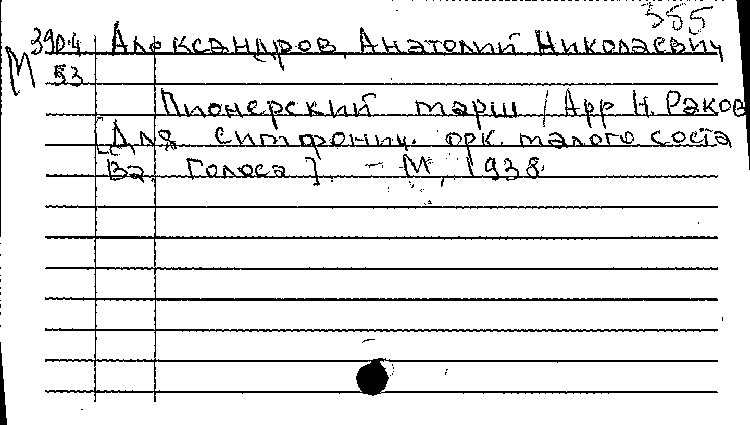 355
М 390.4 Александров, Анатолий Николаевич
53
Пионерский марш / Арр Н. Раков
[Для симфонич. орк. малого соста
ва. Голоса]. - М, 1938.